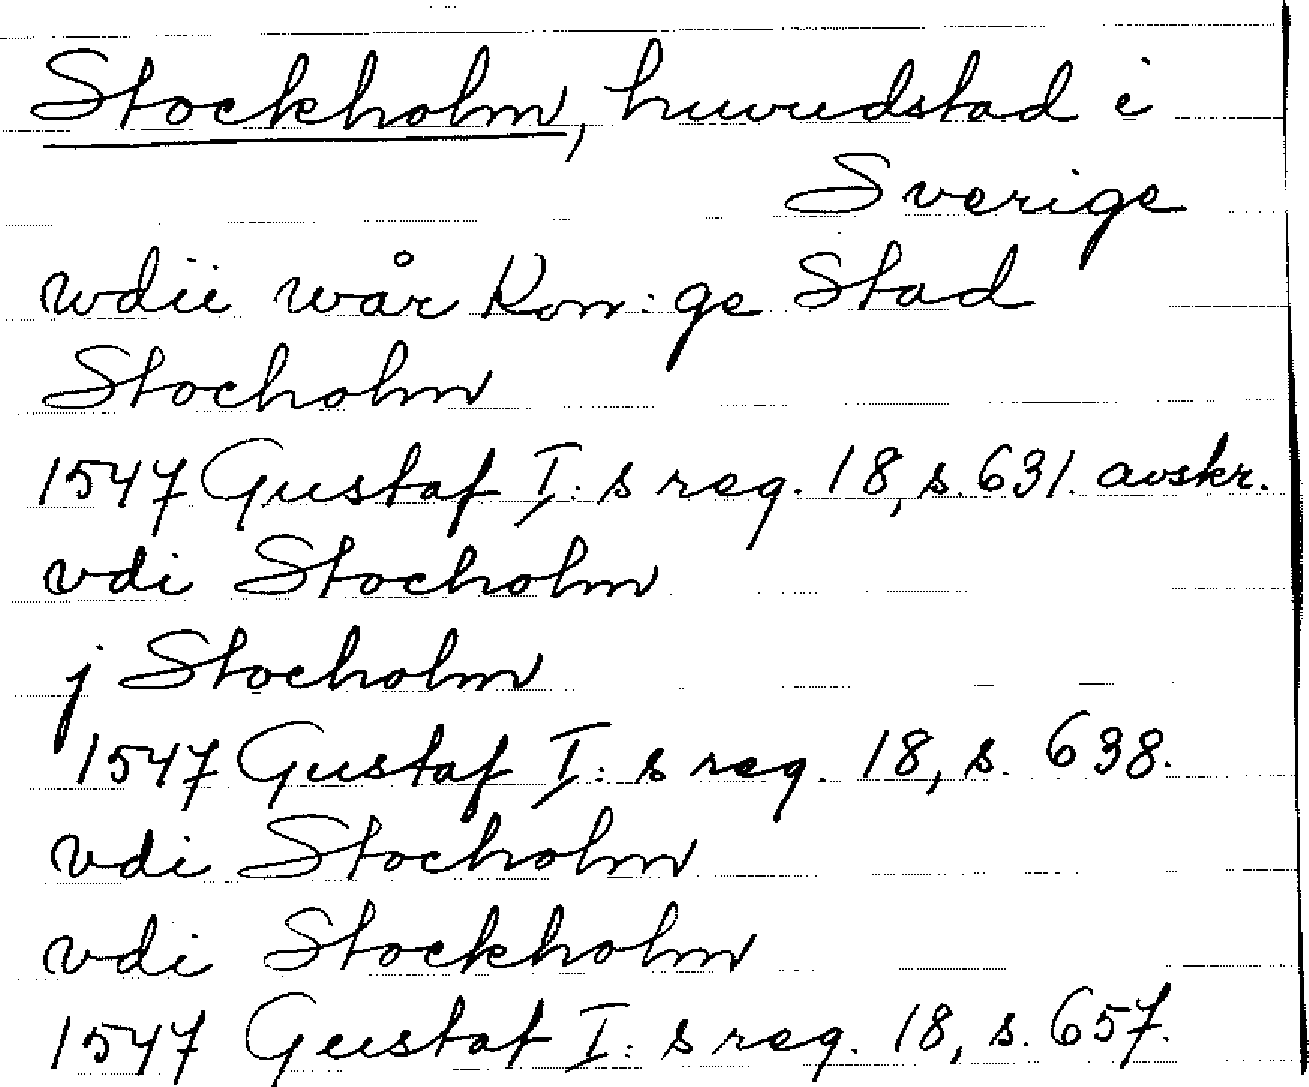 Stockholm, huvudstad i
Sverige
wdii wår Kon:ge Stad
Stocholm
1547 Gustaf I:s reg. 18, s. 631. avskr.
vdi Stocholm
j Stocholm
1547 Gustaf I:s reg. 18, s. 638.
vdi Stocholm
vdi Stockholm
1547 Gustaf I:s reg. 18, s. 657.